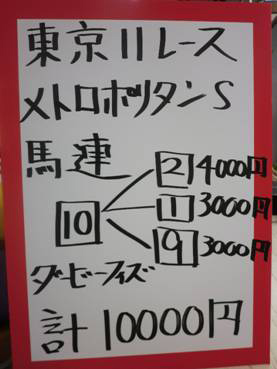 東京11レース
メトロポリタンS
馬連
2 4000円
10 1 3000円
9 3000円
ダービーフィズ
計10000円